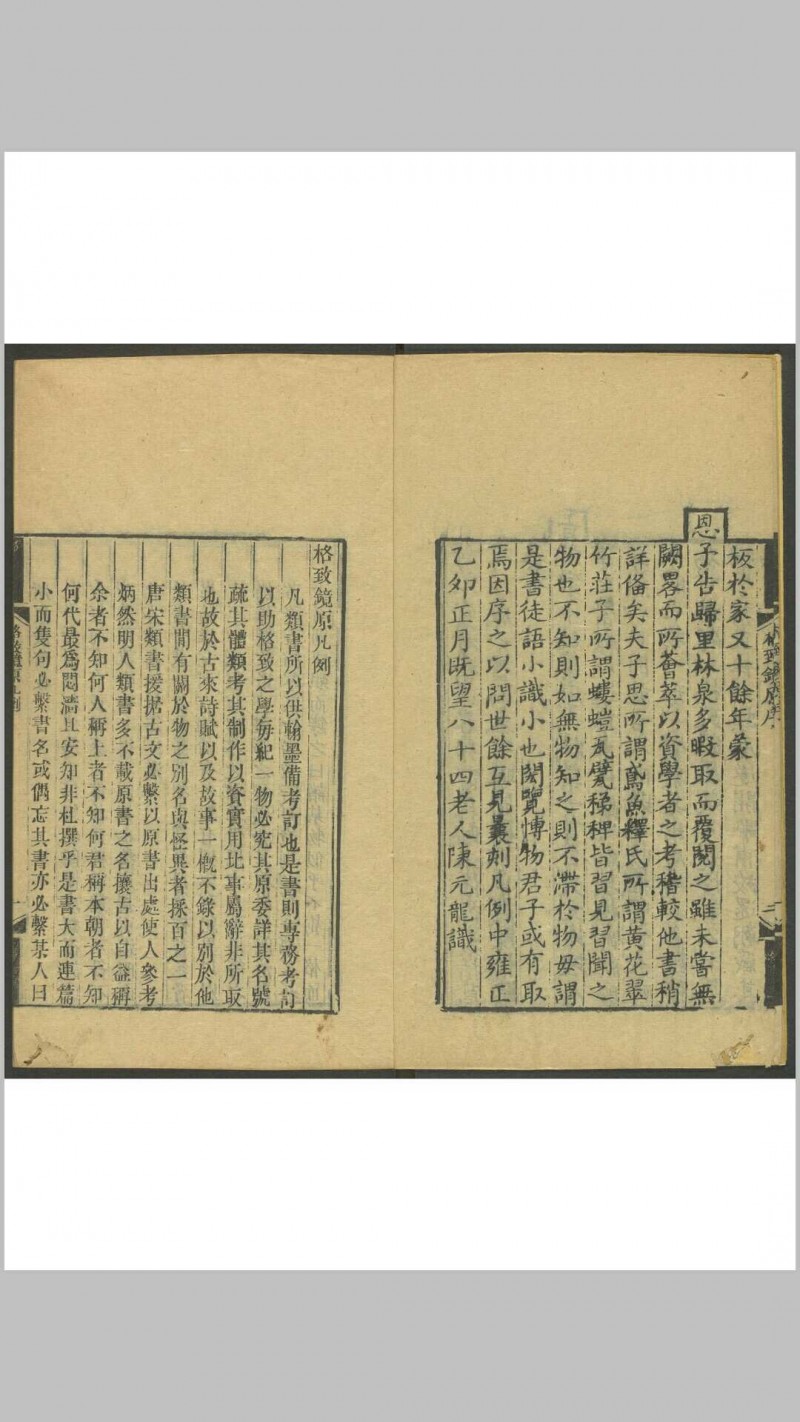 板於家又十餘年蒙
恩予告歸里林泉多暇取而覆閱之雖未嘗無
闕畧而所薈萃以資學者之考稽較他書稍
詳俻矣夫子思所謂鳶魚釋氏所謂黃花翠
竹莊子所謂螻螘瓦甓稊稗皆習見習聞之
物也不知則如無物知之則不滯於物毋謂
是書徒語小識小也閎覽愽物君子或有取
焉因序之以問世餘互見曩刻凡例中雍正
乙夘正月旣望八十四老人陳元龍識
格致鏡原凡例
凡類書所以供翰墨備考訂也是書則專務考訂
以助格致之學每紀一物必究其原委詳其名號
疏其體類考其制作以資實用比事屬辭非所取
也故於古來詩賦以及故事一槪不錄以別於他
類書閒有關於物之別名與怪異者採百之一
唐宋類書援据古文必繫以原書出處使人參考
炳然明人類書多不載原書之名攘古以自益稱
余者不知何人稱上者不知何君稱本朝者不知
何代最爲悶濤且安知非杜撰乎是書大而連篇
小而隻句必繫書名或偶忘其書亦必繫某人曰